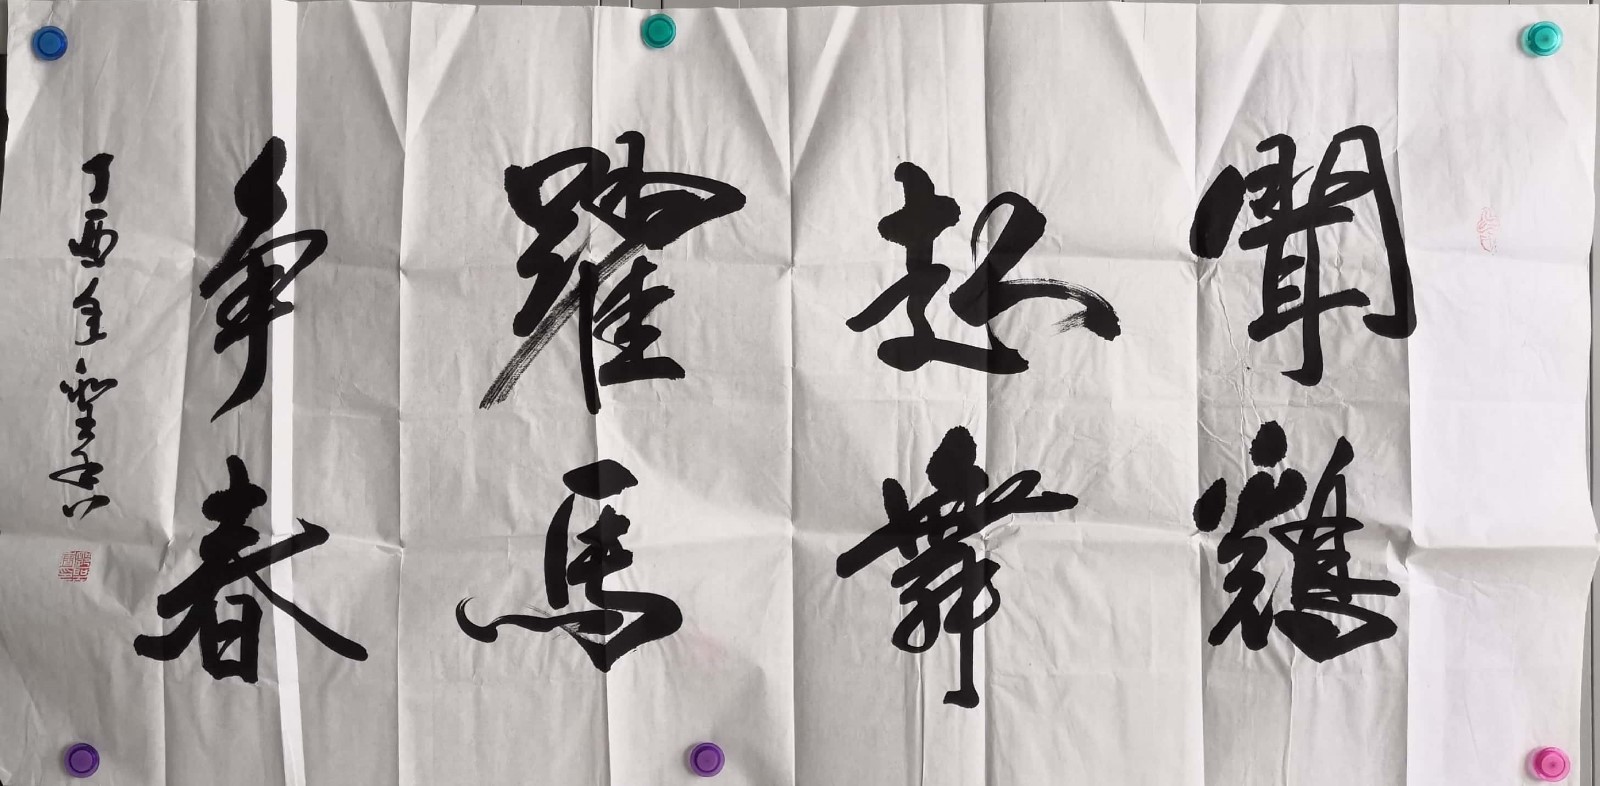 聞鷄
起舞
躍馬
争春
丁酉年